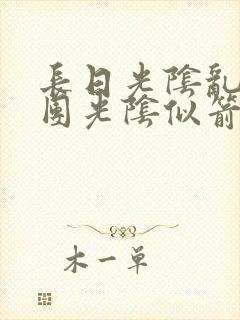 長日光陰亂
團光陰似箭
木一單